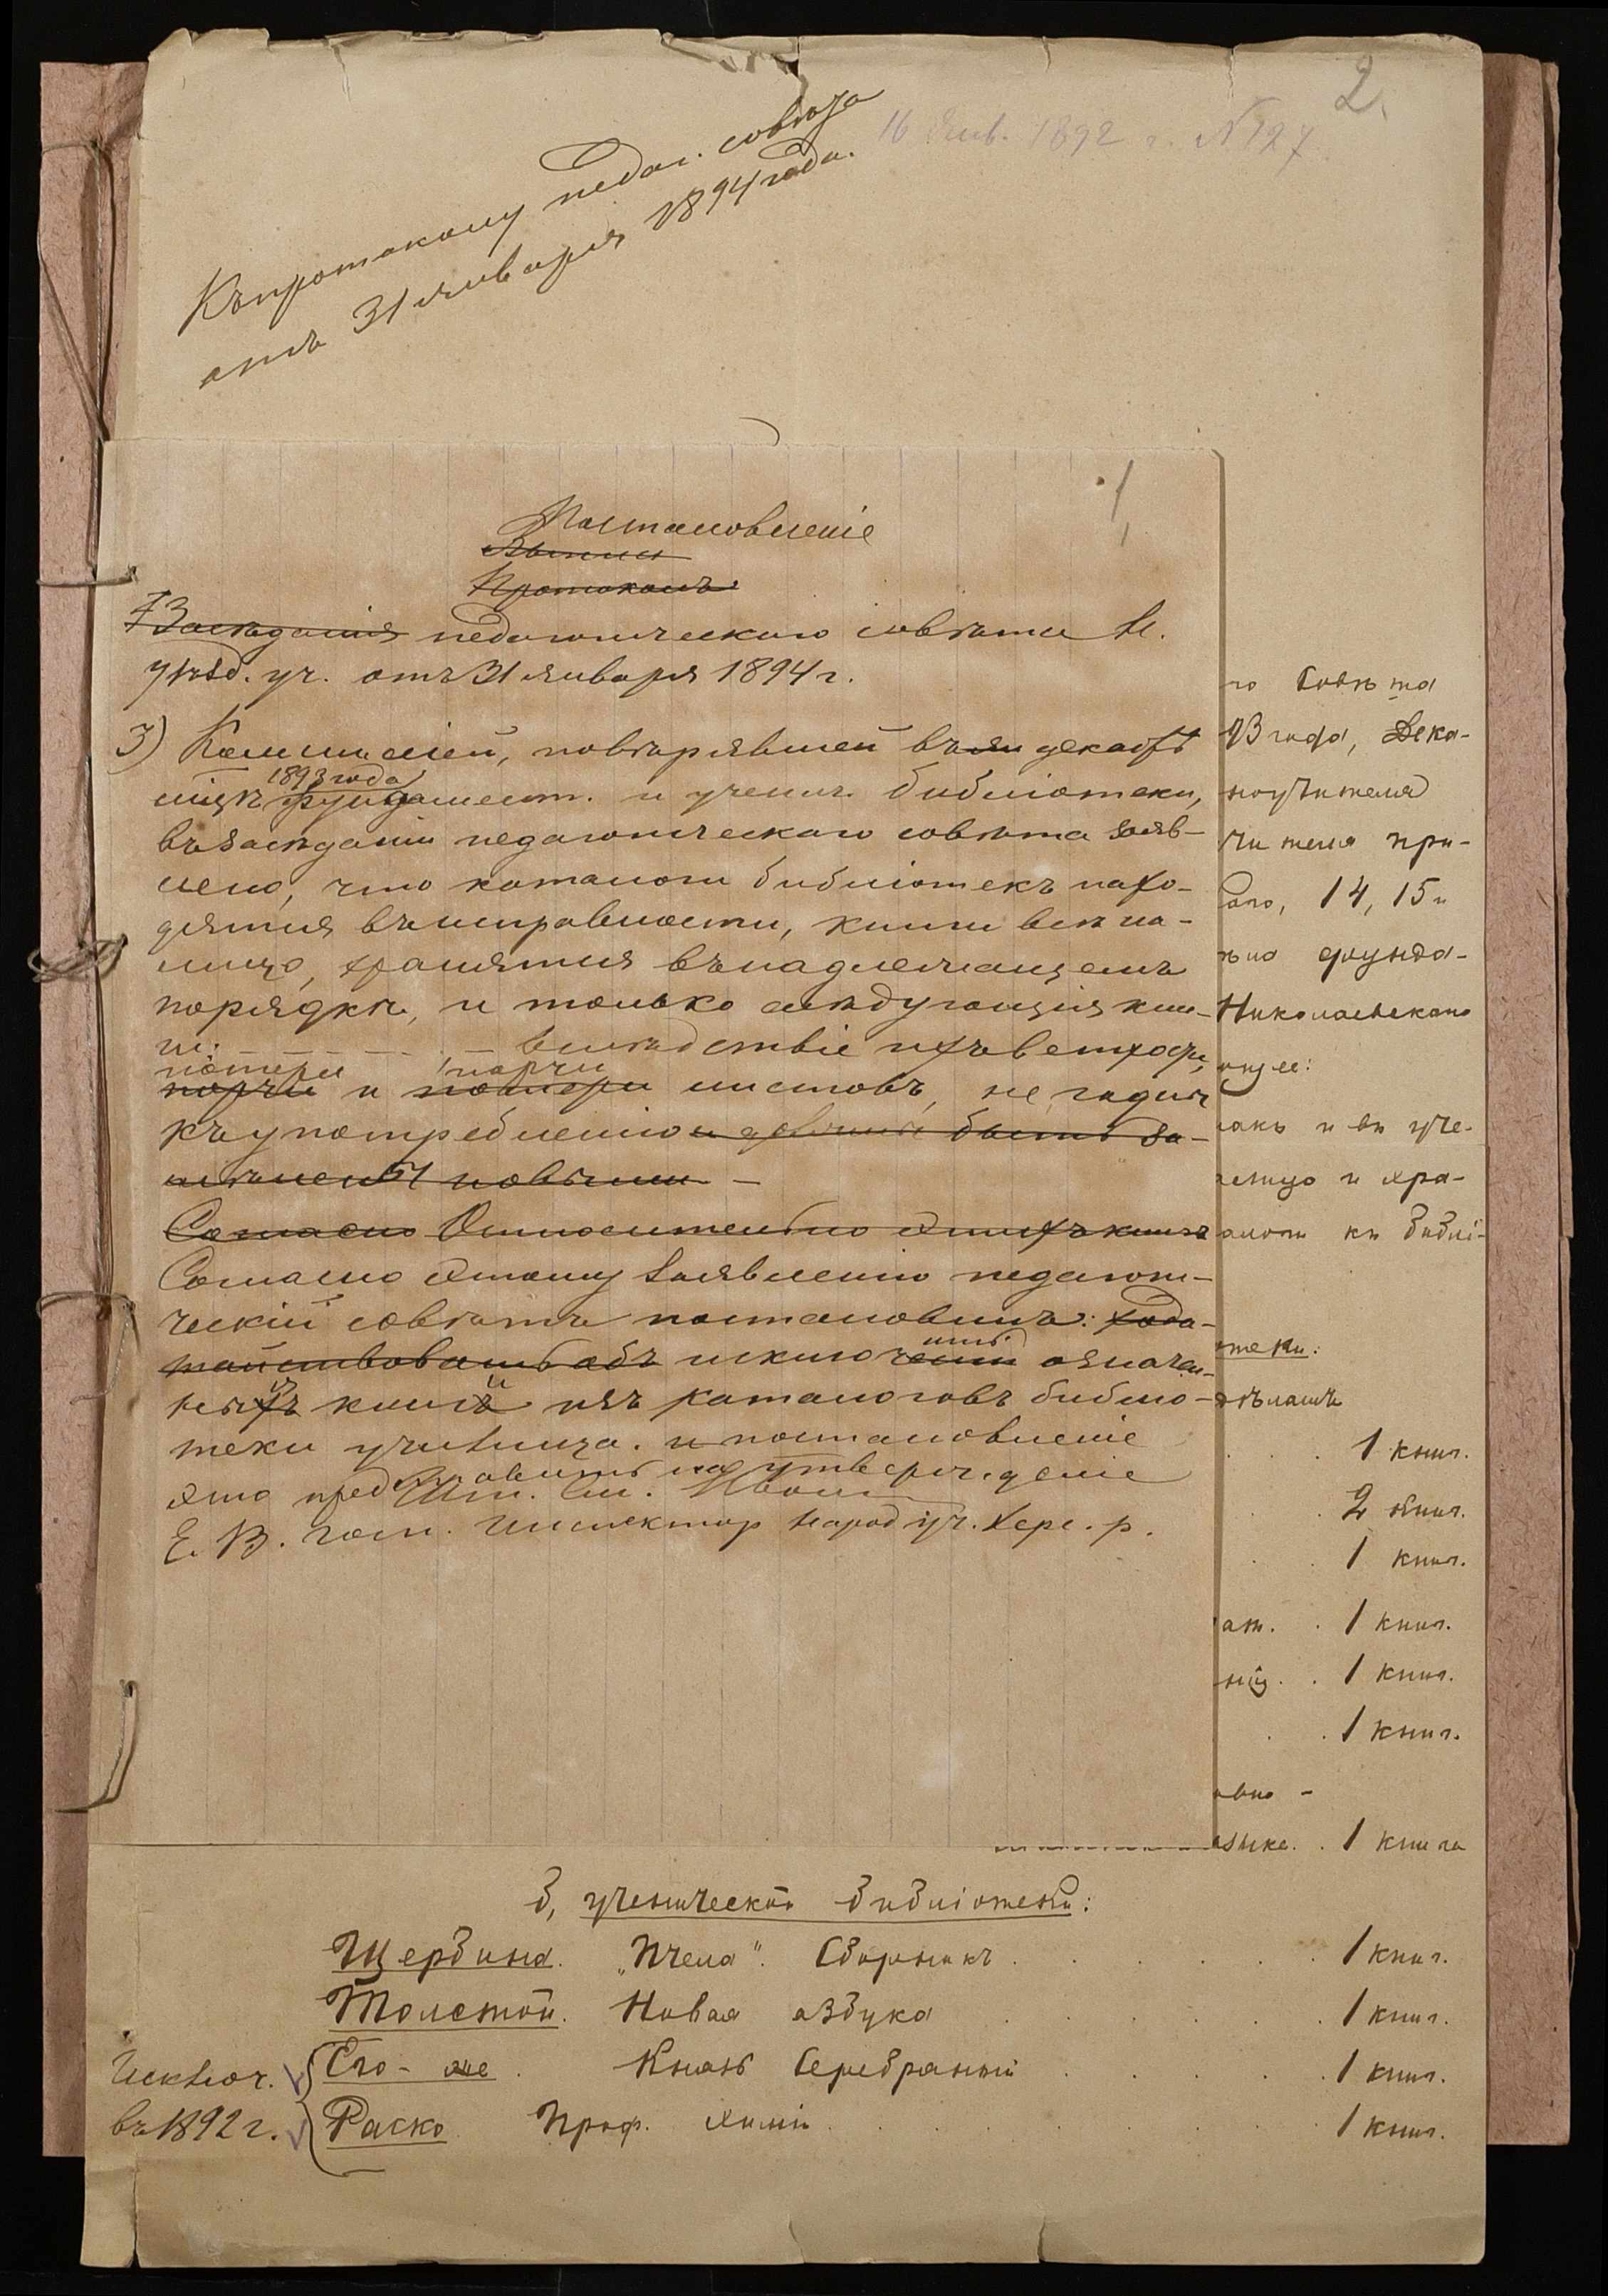 2.
16 Янв. 1892 г. № 127
Къ протоколу педаг. совѣта
отъ 31 января 1894 года.
1
Постановленіе
Выписи
Протоколъ
Засѣданія педагогическаго совѣта Н.
уѣзд. уч. отъ 31 января 1894 г.
3) Коммиссіей, повѣрявшей въ декабрѣ
мѣсяцѣ 1893 года фундамент. и ученич. библіотеки,
въ засѣданіи педагогическаго совѣта заяв-
лено, что каталоги библіотекъ нахо-
дятся въ исправности, книги всѣ на-
лицо, хранятся въ надлежащемъ
порядкѣ, и только слѣдующія кни-
ги: вслѣдствіе ихъ ветхости,
потери порчи
порчи и потери листовъ, не годны
къ употребленію и должны быть за-
мѣнены новыми –
Согласно Относительно этихъ книгъ
Согласно этому заявленію педагоги-
ческій совѣтъ постановилъ: хода-
тайствовать объ исключеніи ить означен-
ныхъ книгъ изъ каталоговъ библіо-
теки училища. и постановленіе
это представить на утвержденіе
Е. В. госп. Инспектор народ. уч. Херс. р.
го Совѣта
93 года, Дека-
ноучителя
чителя при-
14, 15 и
ьно фунда-
Николаевскаго
ющее:
такъ и въ уче-
лицо и хра-
алоги къ библі-
отеки:
1 книг.
2 книг.
1 книг.
ат. . 1 книг.
ній. . 1 книг.
1 книг.
овно -
языка. . 1 книга
б, ученической библіотеки:
Щербина. „Пчела“. Сборникъ . . . . . . 1 книг.
Толстой. Новая азбука . . . . . . 1 книг.
Его-же. Князь Серебряный . . . . . 1 книг.
Раско Проф. Химія . . . . . . 1 книг.
Исключ.
въ 1892 г.